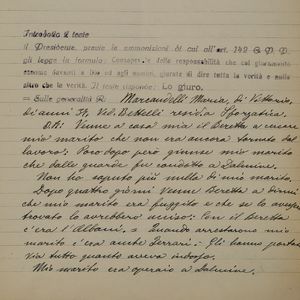 Introdotto il teste
il Presidente, previe le ammonizioni di cui all'art. 142 C.P.P.
gli legge la formula: Consapevole della responsabilità che col giuramento
assume davanti a Dio ed agli uomini, giurate di dire tutta la verità e null'
altro che la verità. Il teste risponde: Lo giuro.
= Sulle generalità R. Marcandelli Maria, di Vittorio,
di anni 34, Ved. Bettelli resid. a Sforzatica
D.R: Venne a casa mia il Beretta a cercare
mio marito che non era ancora tornato dal
lavoro; Poco dopo però giunse mio marito
che dalle guardie fu condotto a Dalmine.
Non ho saputo più nulla di mio marito.
Dopo quattro giorni venne Beretta a dirmi
che mio marito era fuggito e che se lo avessero
trovato lo avrebbero ucciso; Con il Beretta
c'era l'Albani, e quando arrestarono mio
marito c'era anche Ferrari: Gli hanno portato
via tutto quanto aveva indosso.
Mio marito era operaio a Dalmine.